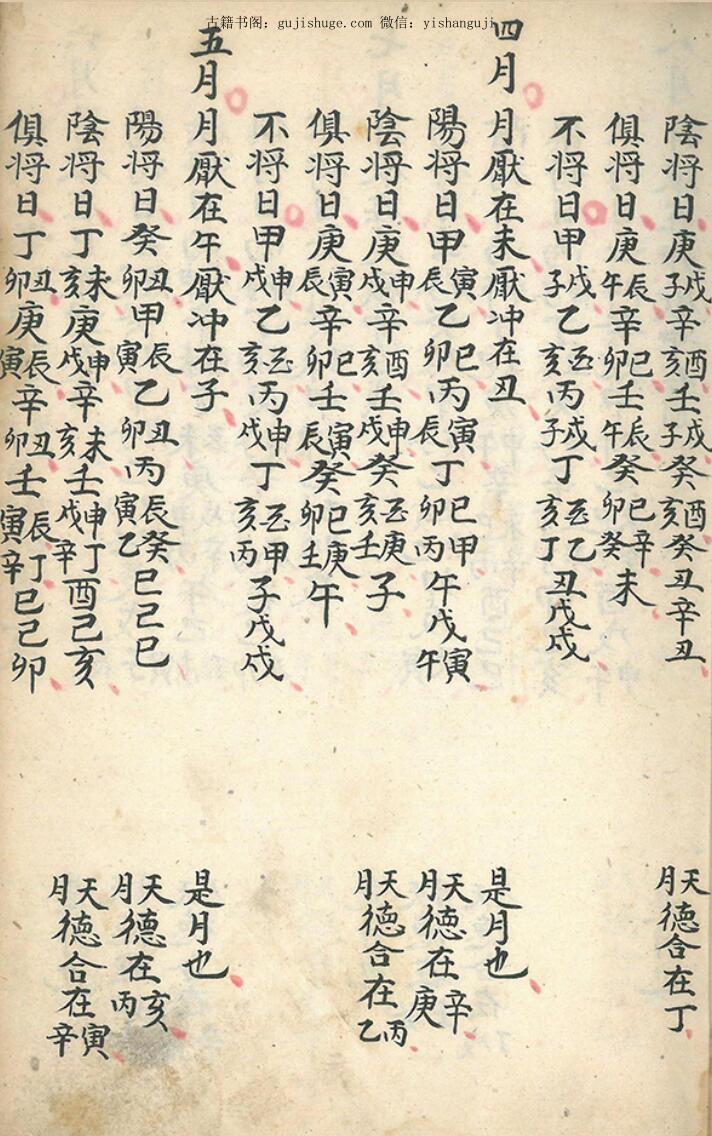 古籍书阁：gujishuge.com 微信：yishanguji
陰将日庚戌子辛酉亥壬戌子癸酉亥癸丑辛丑
天月德合在丁
俱将日庚辰午辛巳卯壬辰午癸巳卯辛癸未
不将日甲戌子乙酉亥丙戌子丁酉亥乙丁丑戊戌
四月 月厭在未厭冲在丑
是月也
陽将日甲寅辰乙巳卯丙寅辰丁巳卯甲丙午戊寅午
天月德在辛庚
陰将日庚申戌辛酉亥壬申戌癸酉亥庚壬子
天月德合在丙乙
俱将日庚寅辰辛巳卯壬寅辰癸巳卯庚壬午
不将日甲申戌乙酉亥丙申戌丁酉亥甲丙子戊戌
五月 月厭在午厭冲在子
是月也
陽将日癸丑卯甲辰寅乙丑卯丙辰寅癸乙巳己巳
天月德在亥丙
陰将日丁未亥庚申戌辛未亥壬申戌丁辛酉己亥
天月德合在寅辛
俱将日丁丑卯庚辰寅辛丑卯壬辰寅丁辛巳己卯